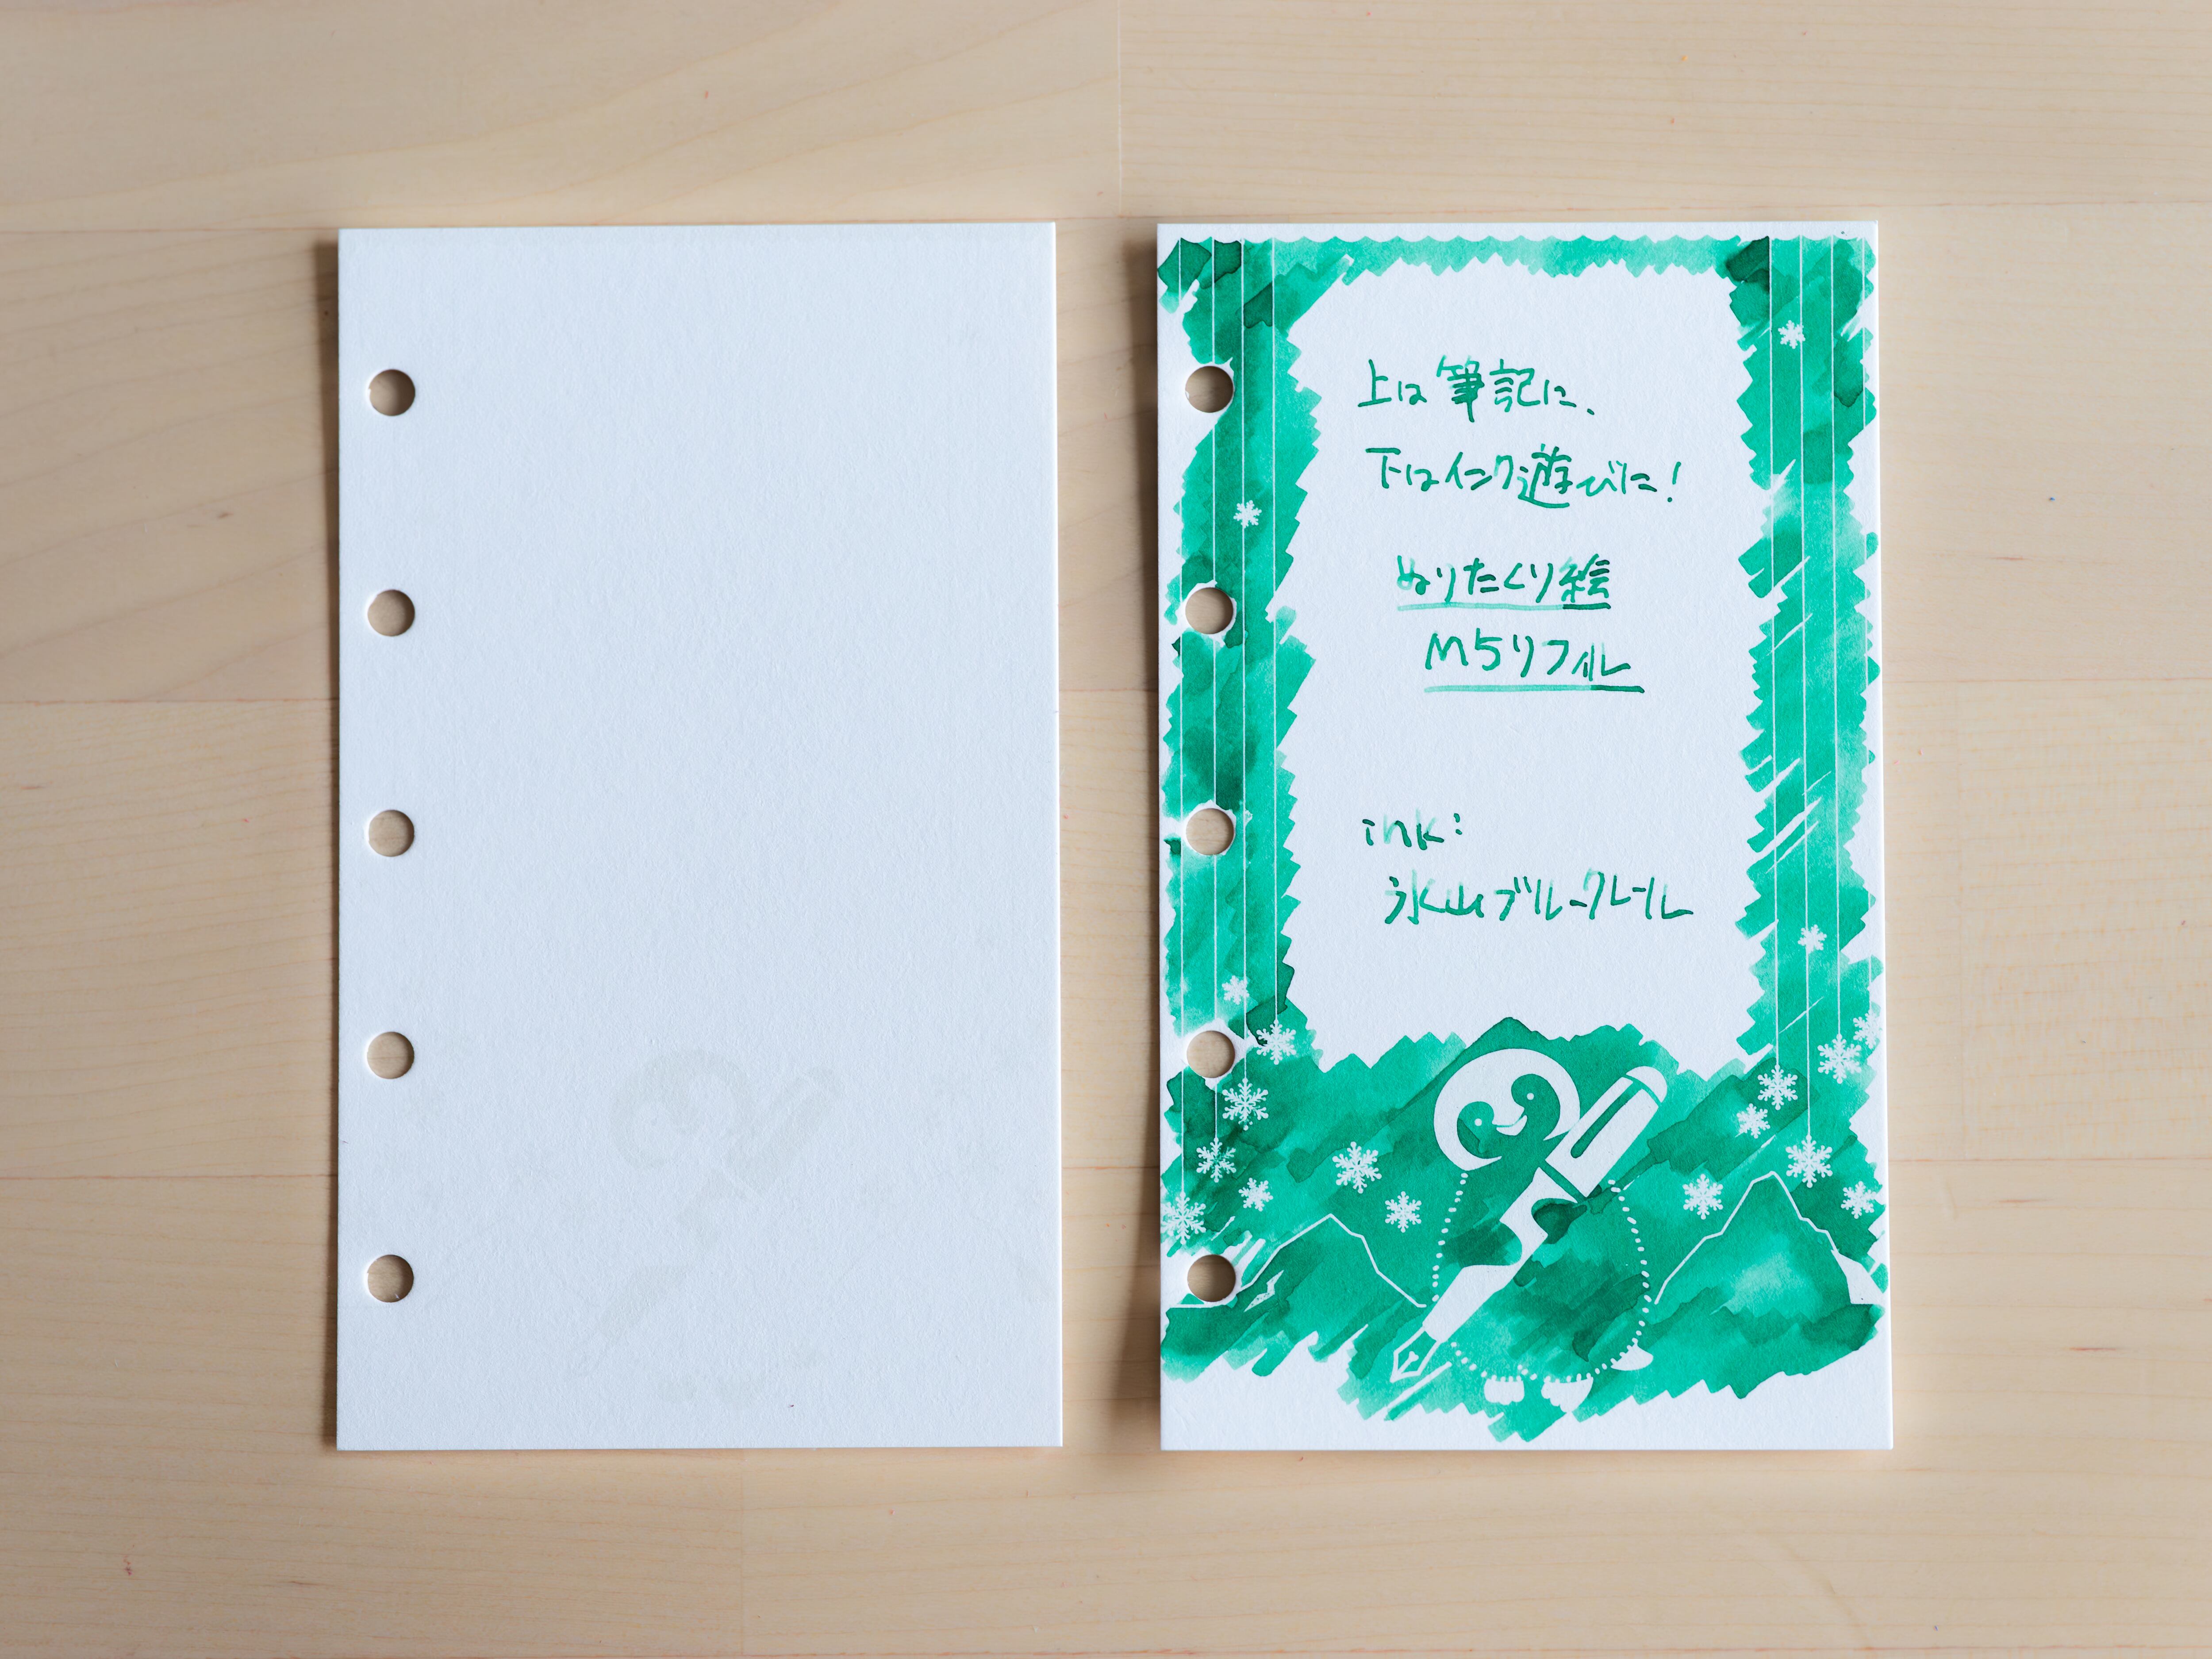 上は筆記に、
下はインク遊びに!
ぬりたくり絵
M5リフィル
ink:
氷山ブルークレール